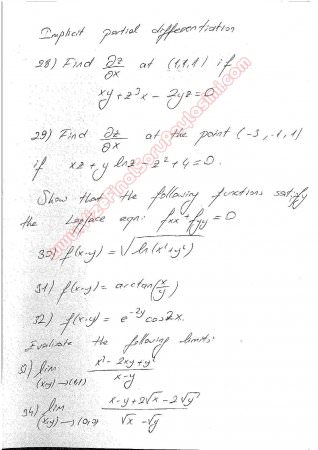 Implicit partial differentiation
28) Find ∂z/∂x at (1,1,1) if
xy + z³x - 2yz = 0
29) Find ∂z/∂x at the point (-3,-1,1)
if xz + y ln z - z² + 4 = 0.
Show that the following functions satisfy
the Lapface eqn: fxx + fyy = 0
30) f(x-y) = √ln(x²+y²)
31) f(x-y) = arctan(x/y)
32) f(x,y) = e^-2y cos2x.
Evaluate the following limits:
33) lim (x,y)→(1,1) x² - 2xy + y² / x-y
34) lim (x,y)→(0,0) x-y+2√x-2√y / √x-√y